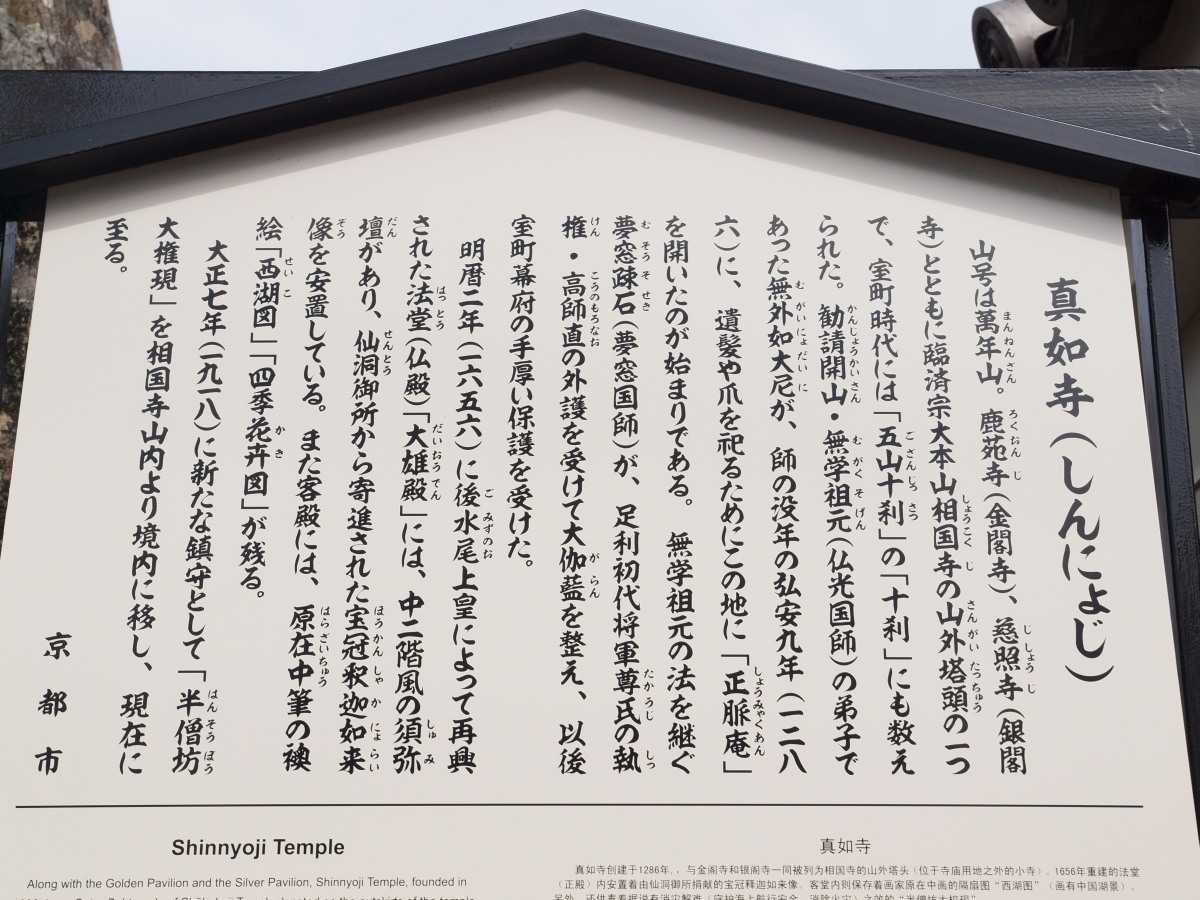 真如寺（しんにょじ）
山号は萬年山。鹿苑寺（金閣寺）、慈照寺（銀閣
寺）とともに臨済宗大本山相国寺の山外塔頭の一つ
で、室町時代には「五山十刹」の「十刹」にも数え
られた。勧請開山・無学祖元（仏光国師）の弟子で
あった無外如大尼が、師の没年の弘安九年（一二八
六）に、遺髪や爪を祀るためにこの地に「正脈庵」
を開いたのが始まりである。無学祖元の法を継ぐ
夢窓疎石（夢窓国師）が、足利初代将軍尊氏の執
権・高師直の外護を受けて大伽藍を整え、以後
室町幕府の手厚い保護を受けた。
明暦二年（一六五六）に後水尾上皇によって再興
された法堂（仏殿）「大雄殿」には、中二階風の須弥
壇があり、仙洞御所から寄進された宝冠釈迦如来
像を安置している。また客殿には、原在中筆の襖
絵「西湖図」「四季花卉図」が残る。
大正七年（一九一八）に新たな鎮守として「半僧坊
大権現」を相国寺山内より境内に移し、現在に
至る。
京都市
Shinnyoji Temple
Along with the Golden Pavilion and the Silver Pavilion, Shinnyoji Temple, founded in
真如寺
真如寺创建于1286年,，与金阁寺和银阁寺一同被列为相国寺的山外塔头（位于寺庙用地之外的小寺）。1656年重建的法堂
（正殿）内安置着由仙洞御所捐献的宝冠释迦如来像。客堂内则保存着画家原在中画的隔扇图“西湖图”（画有中国湖景）。